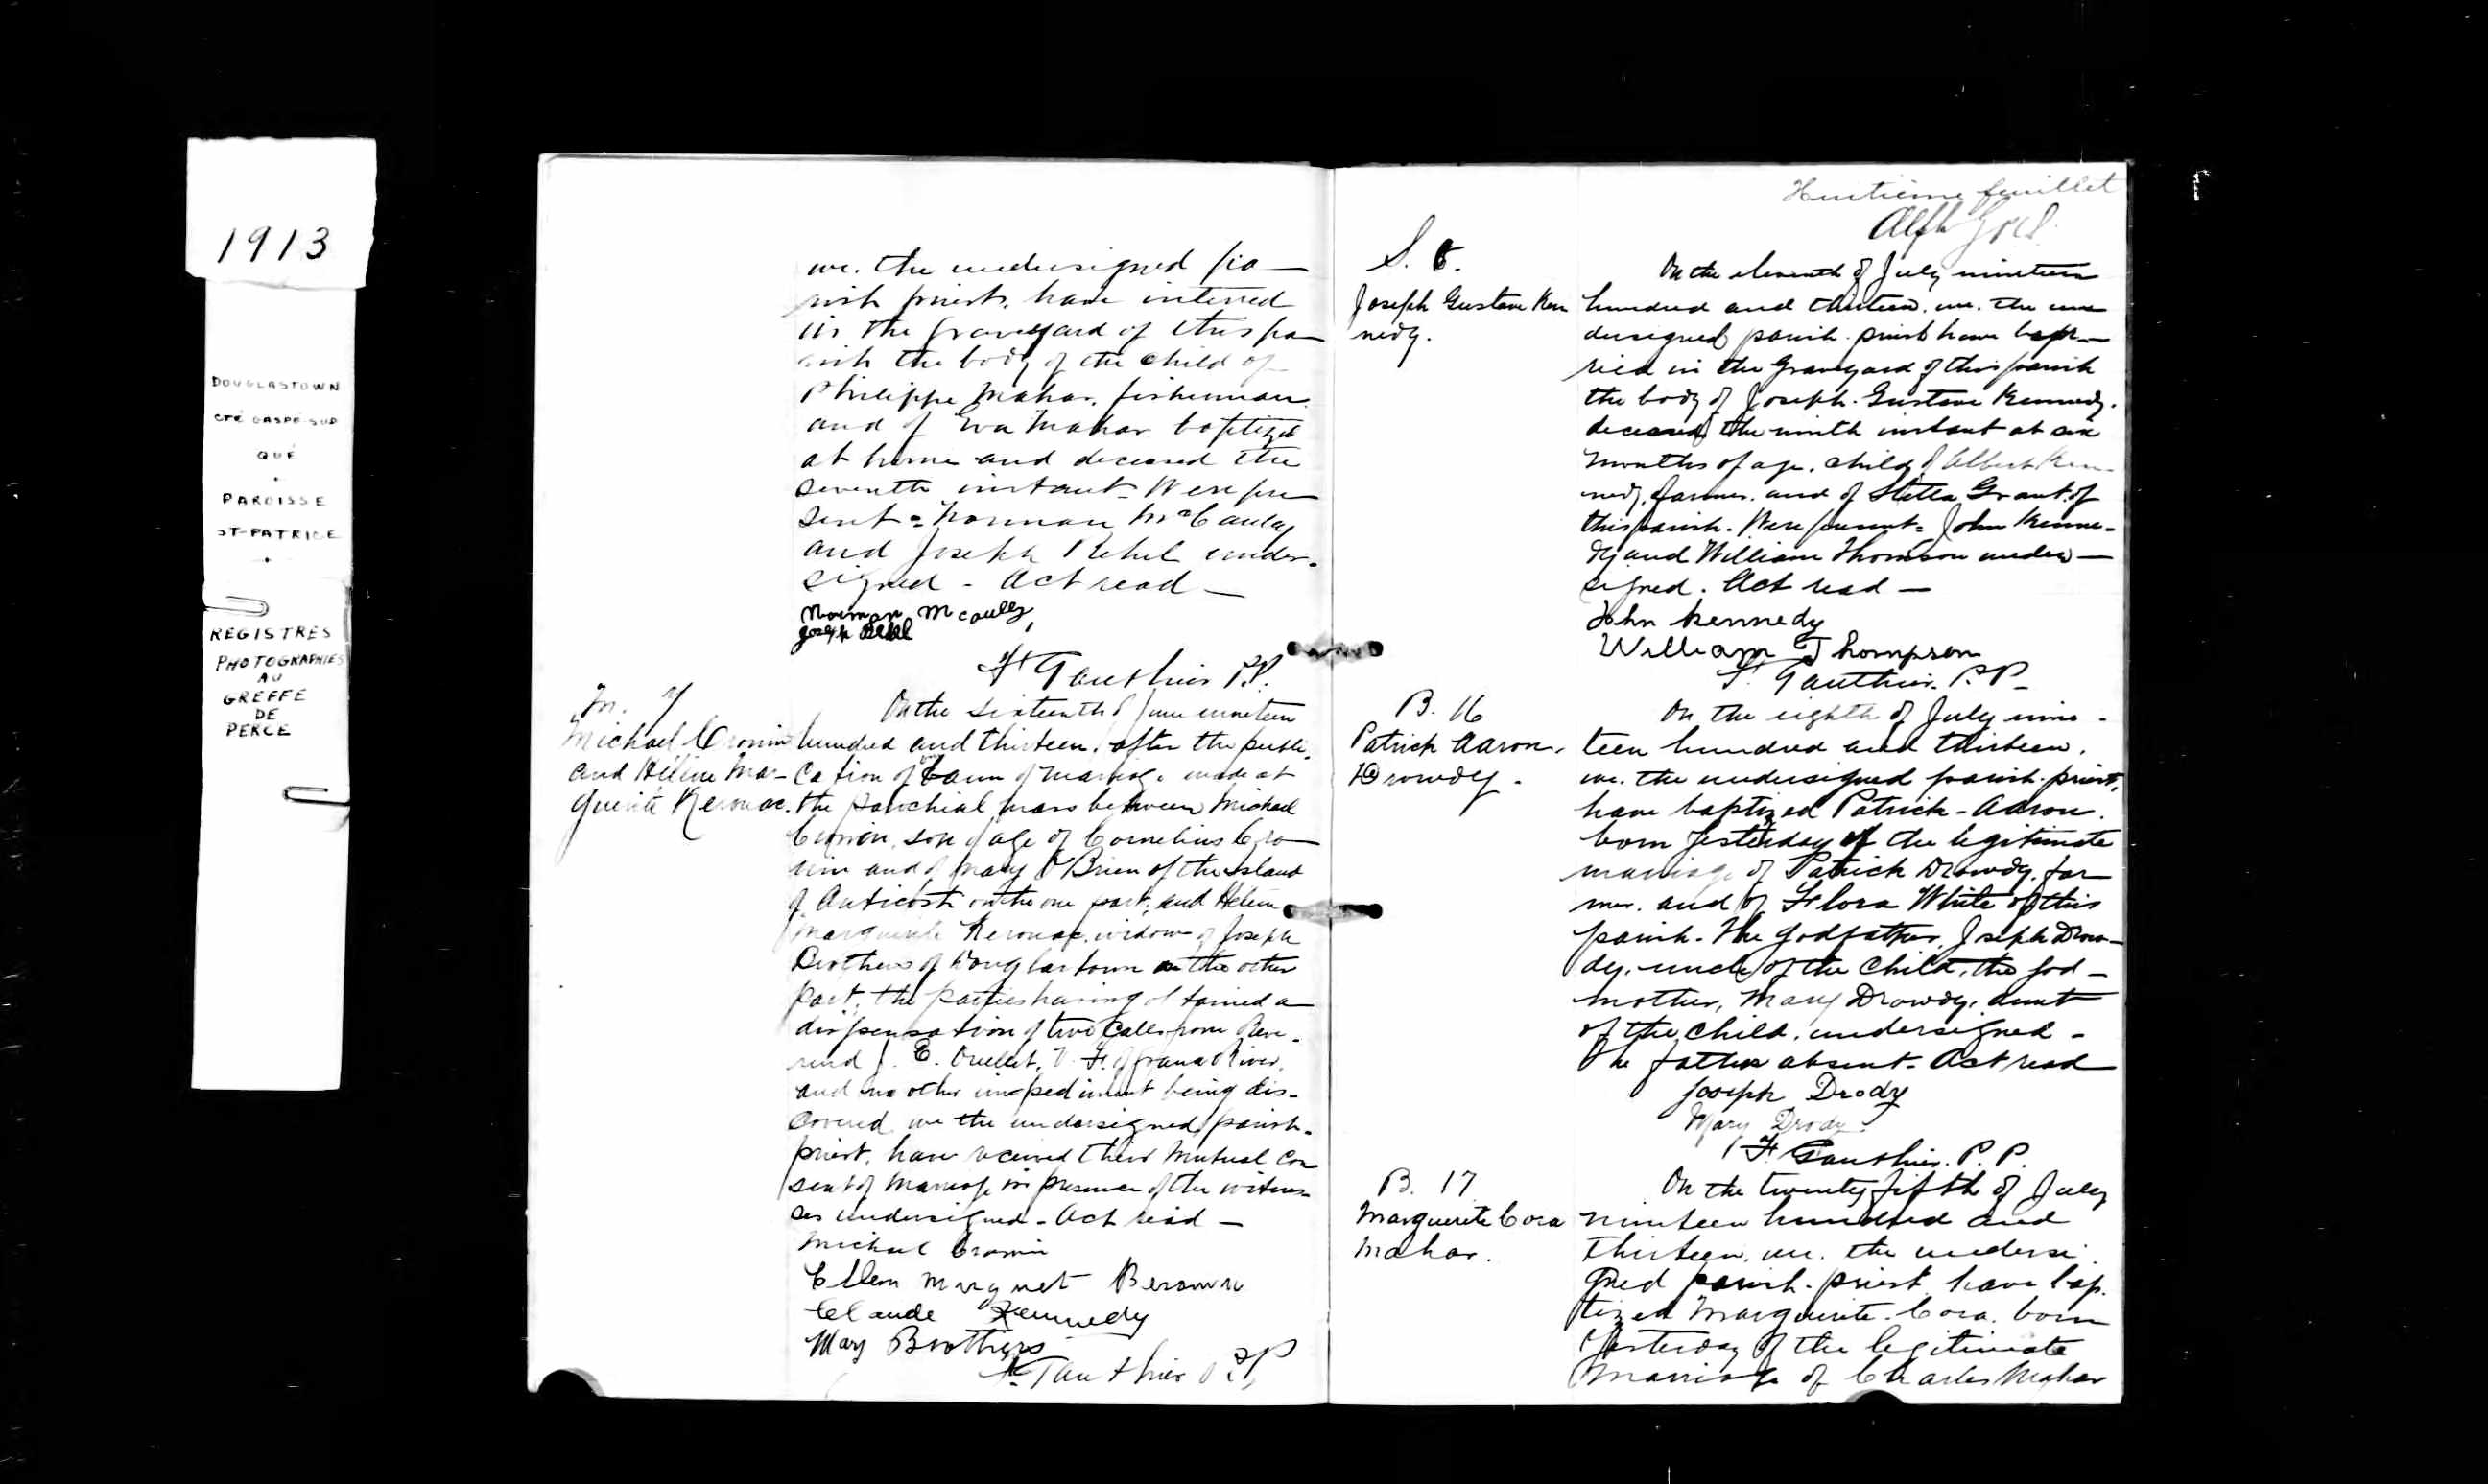 1913
DOUGLASTOWN
CTÉ GASPÉ-SUD
QUÉ
PAROISSE
ST-PATRICE
REGISTRES
PHOTOGRAPHIÉS
AU
GREFFE
DE
PERCÉ
we. the undersigned pa—
rish priest. have interred
in the Graveyard of this pa—
rish the body of the child of
Philippe Mahar. fisherman
and of Eva Mahar baptized
at home and deceased the
seventh instant. Were pre
sent = Norman McCaulay
and Joseph Rehel under-
signed - Act read —
Norman McCaully
Joseph Rehel
Gauthier P.P.
M. 7
Michael Cronin
and Hélène Mar-
guerite Kerouac.
On the sixteenth of June nineteen
hundred and thirteen, after the publi-
cation of bann of marriage made at
the parochial mass between Michael
Cronin, son of age of Cornelius Cro
nin and of Mary O'Brien of the Island
of Anticosti on the one part, and Helene
Marguerite Kerouac. widow of Joseph
Brothers of Douglastown on the other
part, the parties having obtained a
dispensation of two calls from Reve-
rend J. E. Ouellet, V. F. of Grand River,
and no other impediment being dis-
covered we the undersigned, parish-
priest, have received their mutual con
sent of marriage in presence of the witnes-
ses undersigned - Act read —
Michael Cronin
Ellen Margnet
Claude Kennedy
Mary Brothers
Gauthier P.P.
Huitième feuillet
S. 6.
Joseph Gustave Ken
nedy.
On the eleventh of July nineteen
hundred and thirteen. we. the un
dersigned parish. priest have
ried in the Graveyard of this parish
the body of Joseph-Gustave Kennedy.
deceased the ninth instant at six
months of age. child of Albert Ken-
nedy, farmer. and of Stella Grant. of
this parish. Were present = John Kenne-
dy and William Thomson under—
signed. Act read —
John Kennedy
William Thompson
F. Gauthier. P.P.
B. 16
Patrick Aaron.
Drowdy -
On the eighth of July nine -
teen hundred and thirteen.
we. the undersigned parish-priest,
have baptized Patrick-Aaron.
born yesterday of the legitimate
marriage of Patrick Drowdy. far
mer. and of Flora White of this
parish. The godfather, Joseph Drow—
dy. uncle of the child, the god —
mother, Mary Drowdy. aunt
of the child. undersigned -
The father absent. Act read
Joseph Drody
Mary Drody.
F. Gauthier. P. P.
B. 17
Marguerite Cora
Mahar.
On the twenty fifth of July
nineteen hundred and
thirteen, we. the undersi
gned parish-priest. have bap.
tized Marguerite-Cora. born
yesterday of the legitimate
marriage of Charles Mahar